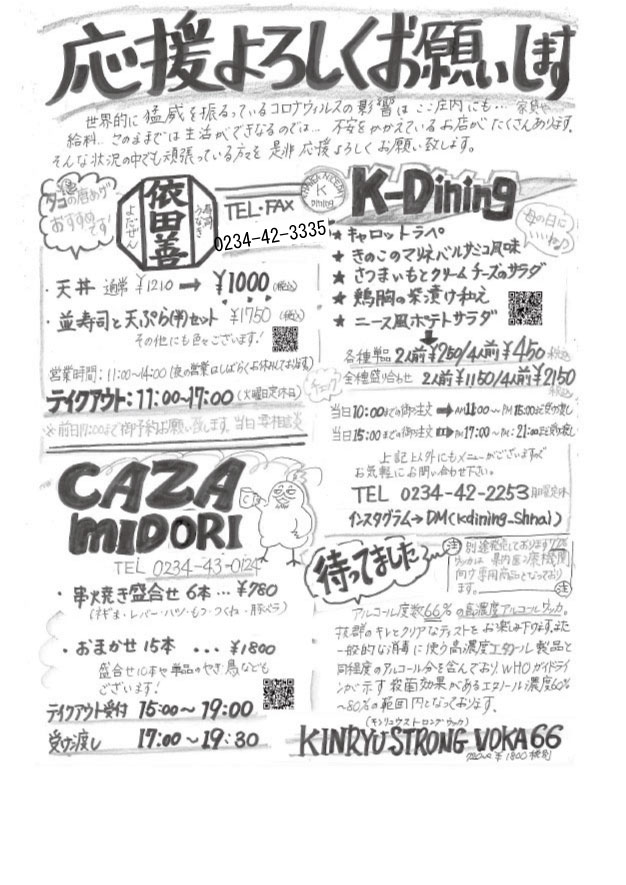 応援よろしくお願いします
世界的に猛威を振るっているコロナウィルスの影響はここ庄内にも… 家賃や
給料… このままでは生活ができなるのでは… 不安をかかえているお店がたくさんあります。
そんな状況の中でも頑張っている方々を是非応援よろしくお願い致します。
タコの唐あげ
おすすめです!
依田善
TEL・FAX
0234-42-3335
・天丼 通常 ¥1210 → ¥1000 (税込)
・並寿司と天ぷら(半)セット ¥1750 (税込)
その他にも色々ございます!
営業時間:11:00~14:00(夜の営業はしばらくお休みしております)
テイクアウト:11:00~17:00(火曜日定休日)
K
Dining
K-Dining
母の日に
いいね♪
★ キャロットラペ
★ きのこのマリネバルサミコ風味
★ さつまいもとクリームチーズのサラダ
★ 鶏胸の茶漬け和え
★ ニース風ポテトサラダ
各種単品 2人前¥250/4人前¥450 税込
全種盛り合わせ 2人前¥1150/4人前¥2150
チェック
当日10:00までの御注文 → AM11:00~PM15:00まで受け渡し
当日15:00までの御注文 → PM17:00~PM21:00まで受け渡し
上記以外にもメニューがございますので
お気軽にお問い合わせ下さい。
TEL 0234-42-2253 月曜定休
インスタグラム→DM(kdining_shnai)
CAZA
MIDORI
TEL 0234-43-0124
・串火焼き盛合せ 6本… ¥780
(ネギま・レバー・ハツ・もつ・つくね・豚バラ)
・おまかせ15本 ... ¥1800
盛合せ10本や単品のやき鳥なども
ございます!
テイクアウト受付 15:00~19:00
受け渡し 17:00~19:30
待ってました~
注 別途発売しております77%
ウォッカは県内医療機関
向け専用商品となっており
ます。 注
アルコール度数66%の高濃度アルコールウォッカ。
抜群のキレとクリアなテイストをお楽しみ下さい。また
一般的な消毒に使う高濃度エタノール製品と
同程度のアルコール分を含んでおり、WHOガイドライ
ンが示す殺菌効果があるエタノール濃度60%
~80%の範囲内となっております。
(キンリュウストロングウォッカ)
KINRYU STRONG VOKA 66
720ml ¥1800 税別